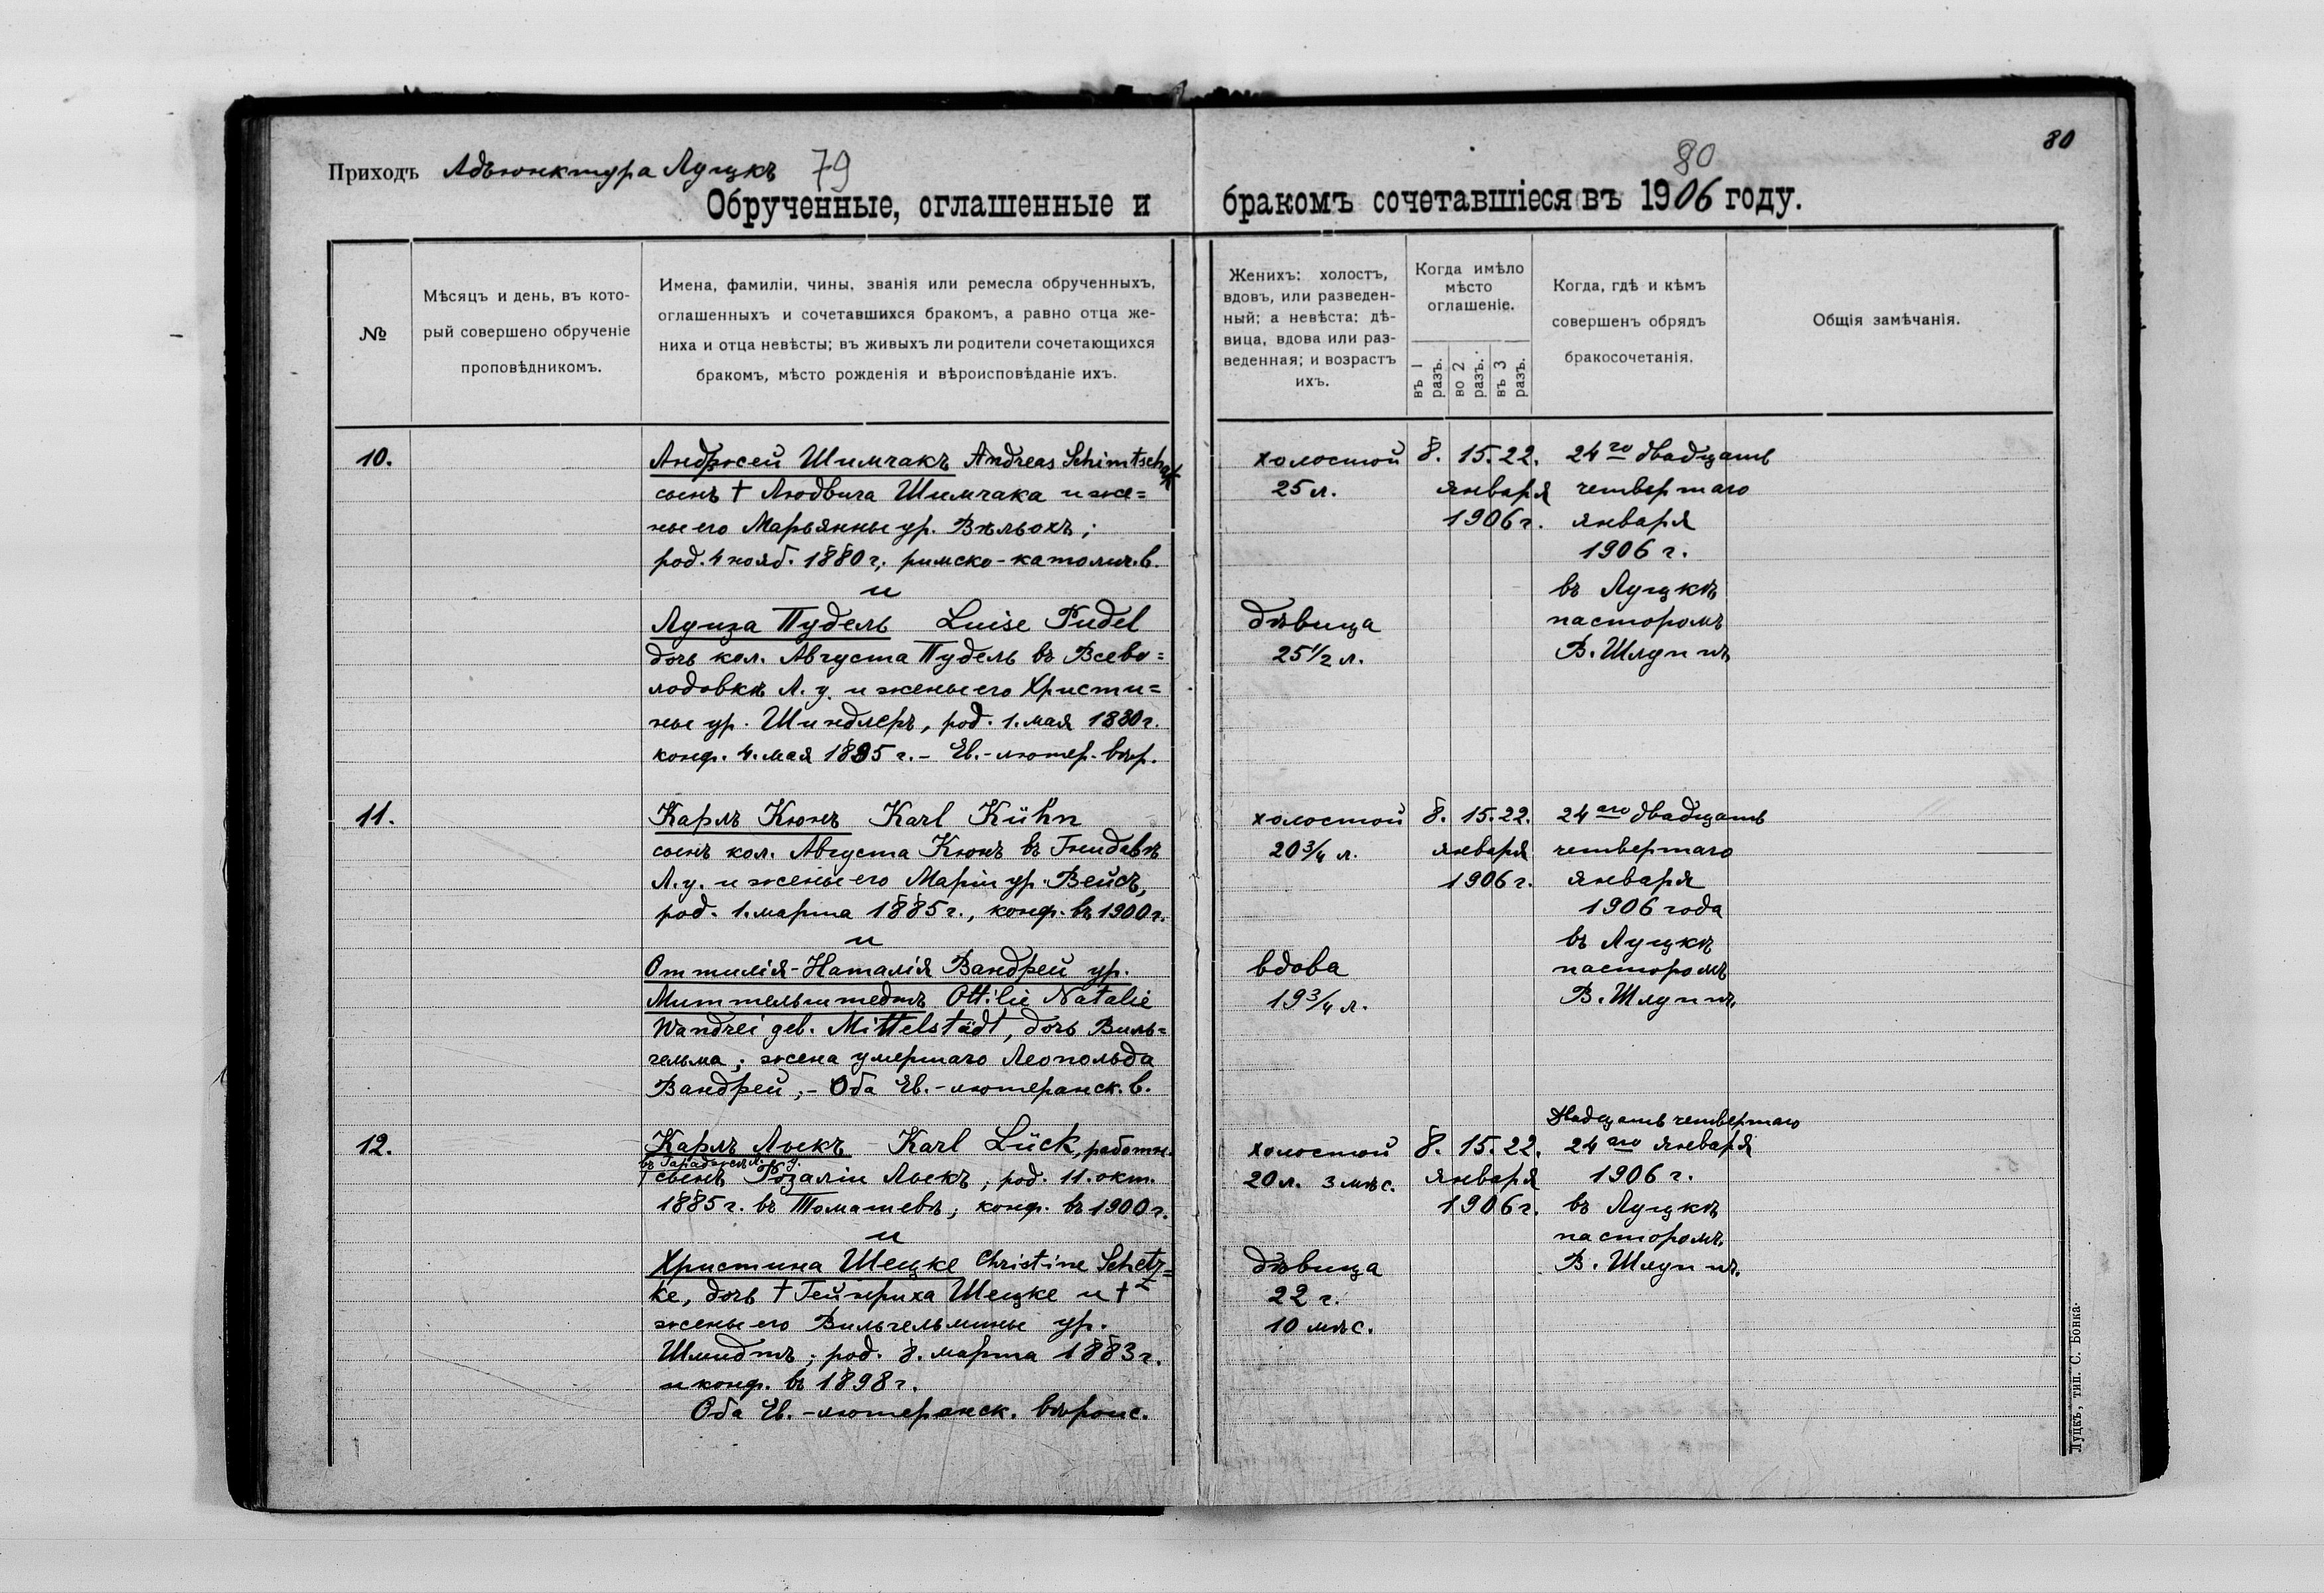 Приходъ Адъюнктура Луцкъ 79
80
80
Обрученные, оглашенные и бракомъ сочетавшіеся въ 1906 году.
№
Мѣсяцъ и день, въ кото-
рый совершено обрученіе
проповѣдникомъ.
Имена, фамиліи, чины, званія или ремесла обрученныхъ,
оглашенныхъ и сочетавшихся бракомъ, а равно отца же-
ниха и отца невѣсты; въ живыхъ ли родители сочетающихся
бракомъ, мѣсто рожденія и вѣроисповѣданіе ихъ.
Женихъ: холостъ,
вдовъ, или разведен-
ный; а невѣста: дѣ-
вица, вдова или раз-
веденная; и возрастъ
ихъ.
Когда имѣло
мѣсто
оглашеніе.
въ 1 разъ.
во 2 разъ.
въ 3 разъ.
Когда, гдѣ и кѣмъ
совершенъ обрядъ
бракосочетанія.
Общія замѣчанія.
10.
Андржей Шимчакъ Andreas Schimtschak
сынъ † Людвига Шимчака и же=
ны его Марьянны ур. Вѣльохъ;
род. 4 нояб. 1880 г. римско-католич. в.
и
Луиза Пудель Luise Pudel
дочь кол. Августа Пудель въ Всево=
лодовкѣ Л. у. и жены его Христи=
ны ур. Шиндлеръ, род. 1. мая 1880 г.
конф. 4. мая 1895 г. - Ев.-лютер. вѣр.
холостой
25 л.
дѣвица
25½ л.
8. 15. 22.
января
1906 г.
24го двадцать
четвертаго
января
1906 г.
въ Луцкѣ
пасторомъ
В. Шлуппъ
11.
Карлъ Кюнъ Karl Kühn
сынъ кол. Августа Кюнъ въ Гнидавѣ
Л. у. и жены его Маріи ур. Вейсъ,
род. 1. марта 1885 г., конф. въ 1900 г.
и
Оттилія-Наталія Вандрей ур.
Миттельштедтъ Ottilie Natalie
Wandrei geb. Mittelstädt, дочь Виль=
гельма; жена умершаго Леопольда
Вандрей; - Оба Ев.-лютеранск. в.
холостой
20¾ л.
вдова
19¾ л.
8. 15. 22.
января
1906 г.
24аго двадцать
четвертаго
января
1906 года
въ Луцкѣ
пасторомъ
В. Шлуппъ.
12.
Карлъ Лыкъ - Karl Lück, работн.
сынъ Розаліи Лыкъ, род. 11. окт.
1885 г. въ Томашевѣ; конф. въ 1900 г.
и
Христина Шецке Christine Schetz=
ke, дочь † Гейнриха Шецке и †
жены его Вильгельмины ур.
Шмидтъ; род. 8. марта 1883 г.
и конф. въ 1898 г.
Оба Ев.-лютеранск. вѣроис.
холостой
20 л. 3 мѣс.
дѣвица
22 г.
10 мѣс.
8. 15. 22.
января
1906 г.
Двадцать четвертаго
24аго января
1906 г.
въ Луцкѣ
пасторомъ
В. Шлуппъ.
Луцкъ, тип. С. Бонка.